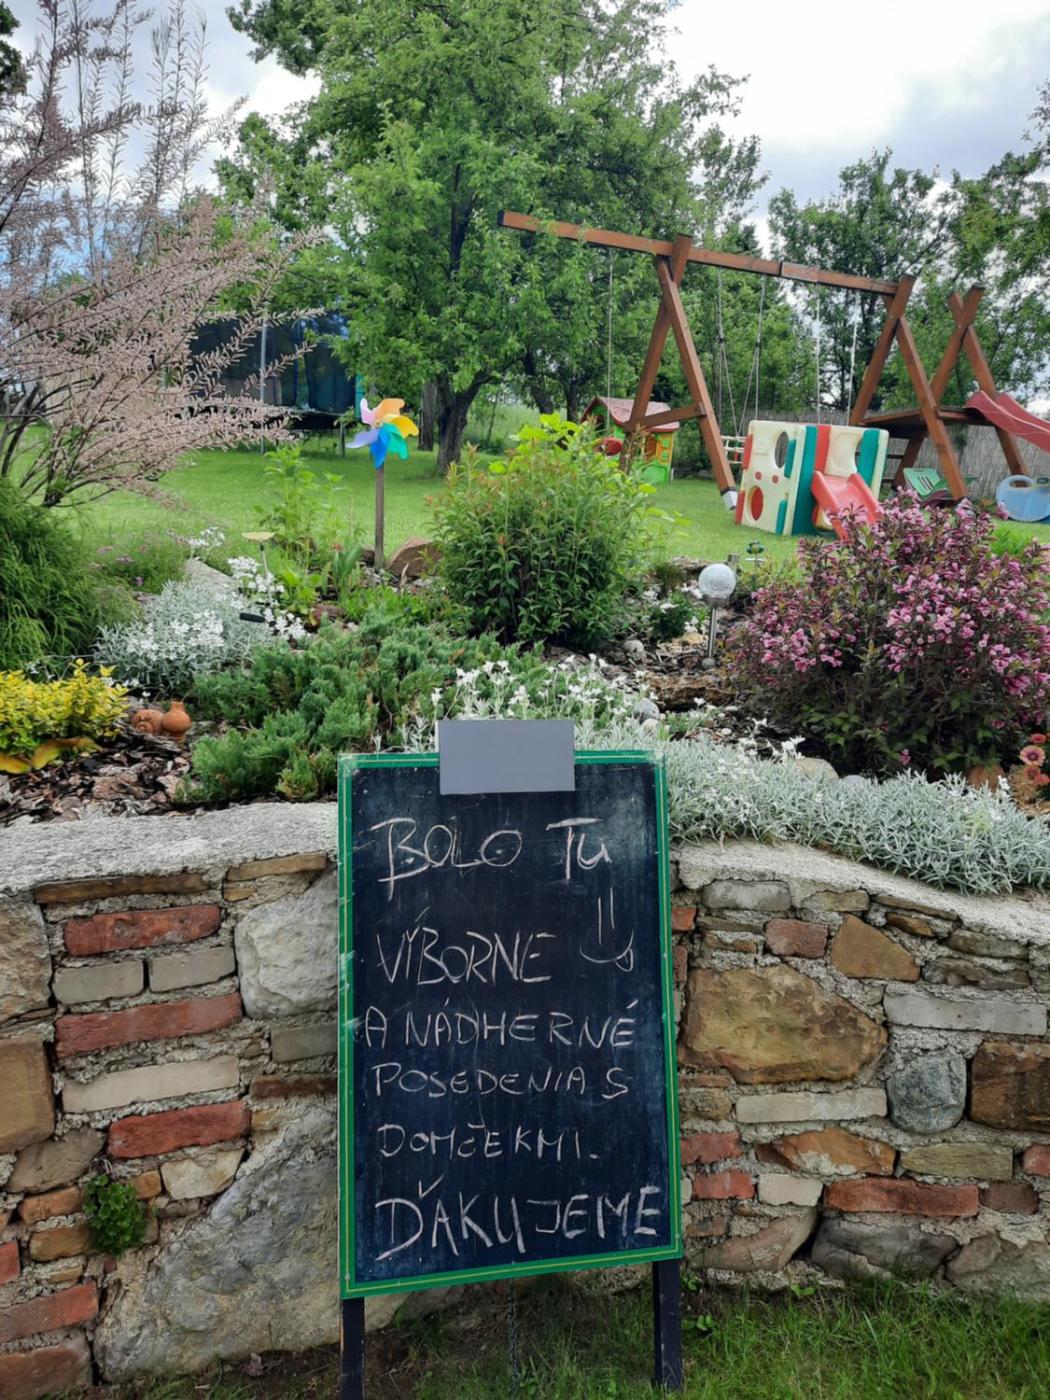 BOLO TU
VÝBORNE
A NÁDHERNÉ
POSEDENIA S
DOMČEKMI.
ĎAKUJEME